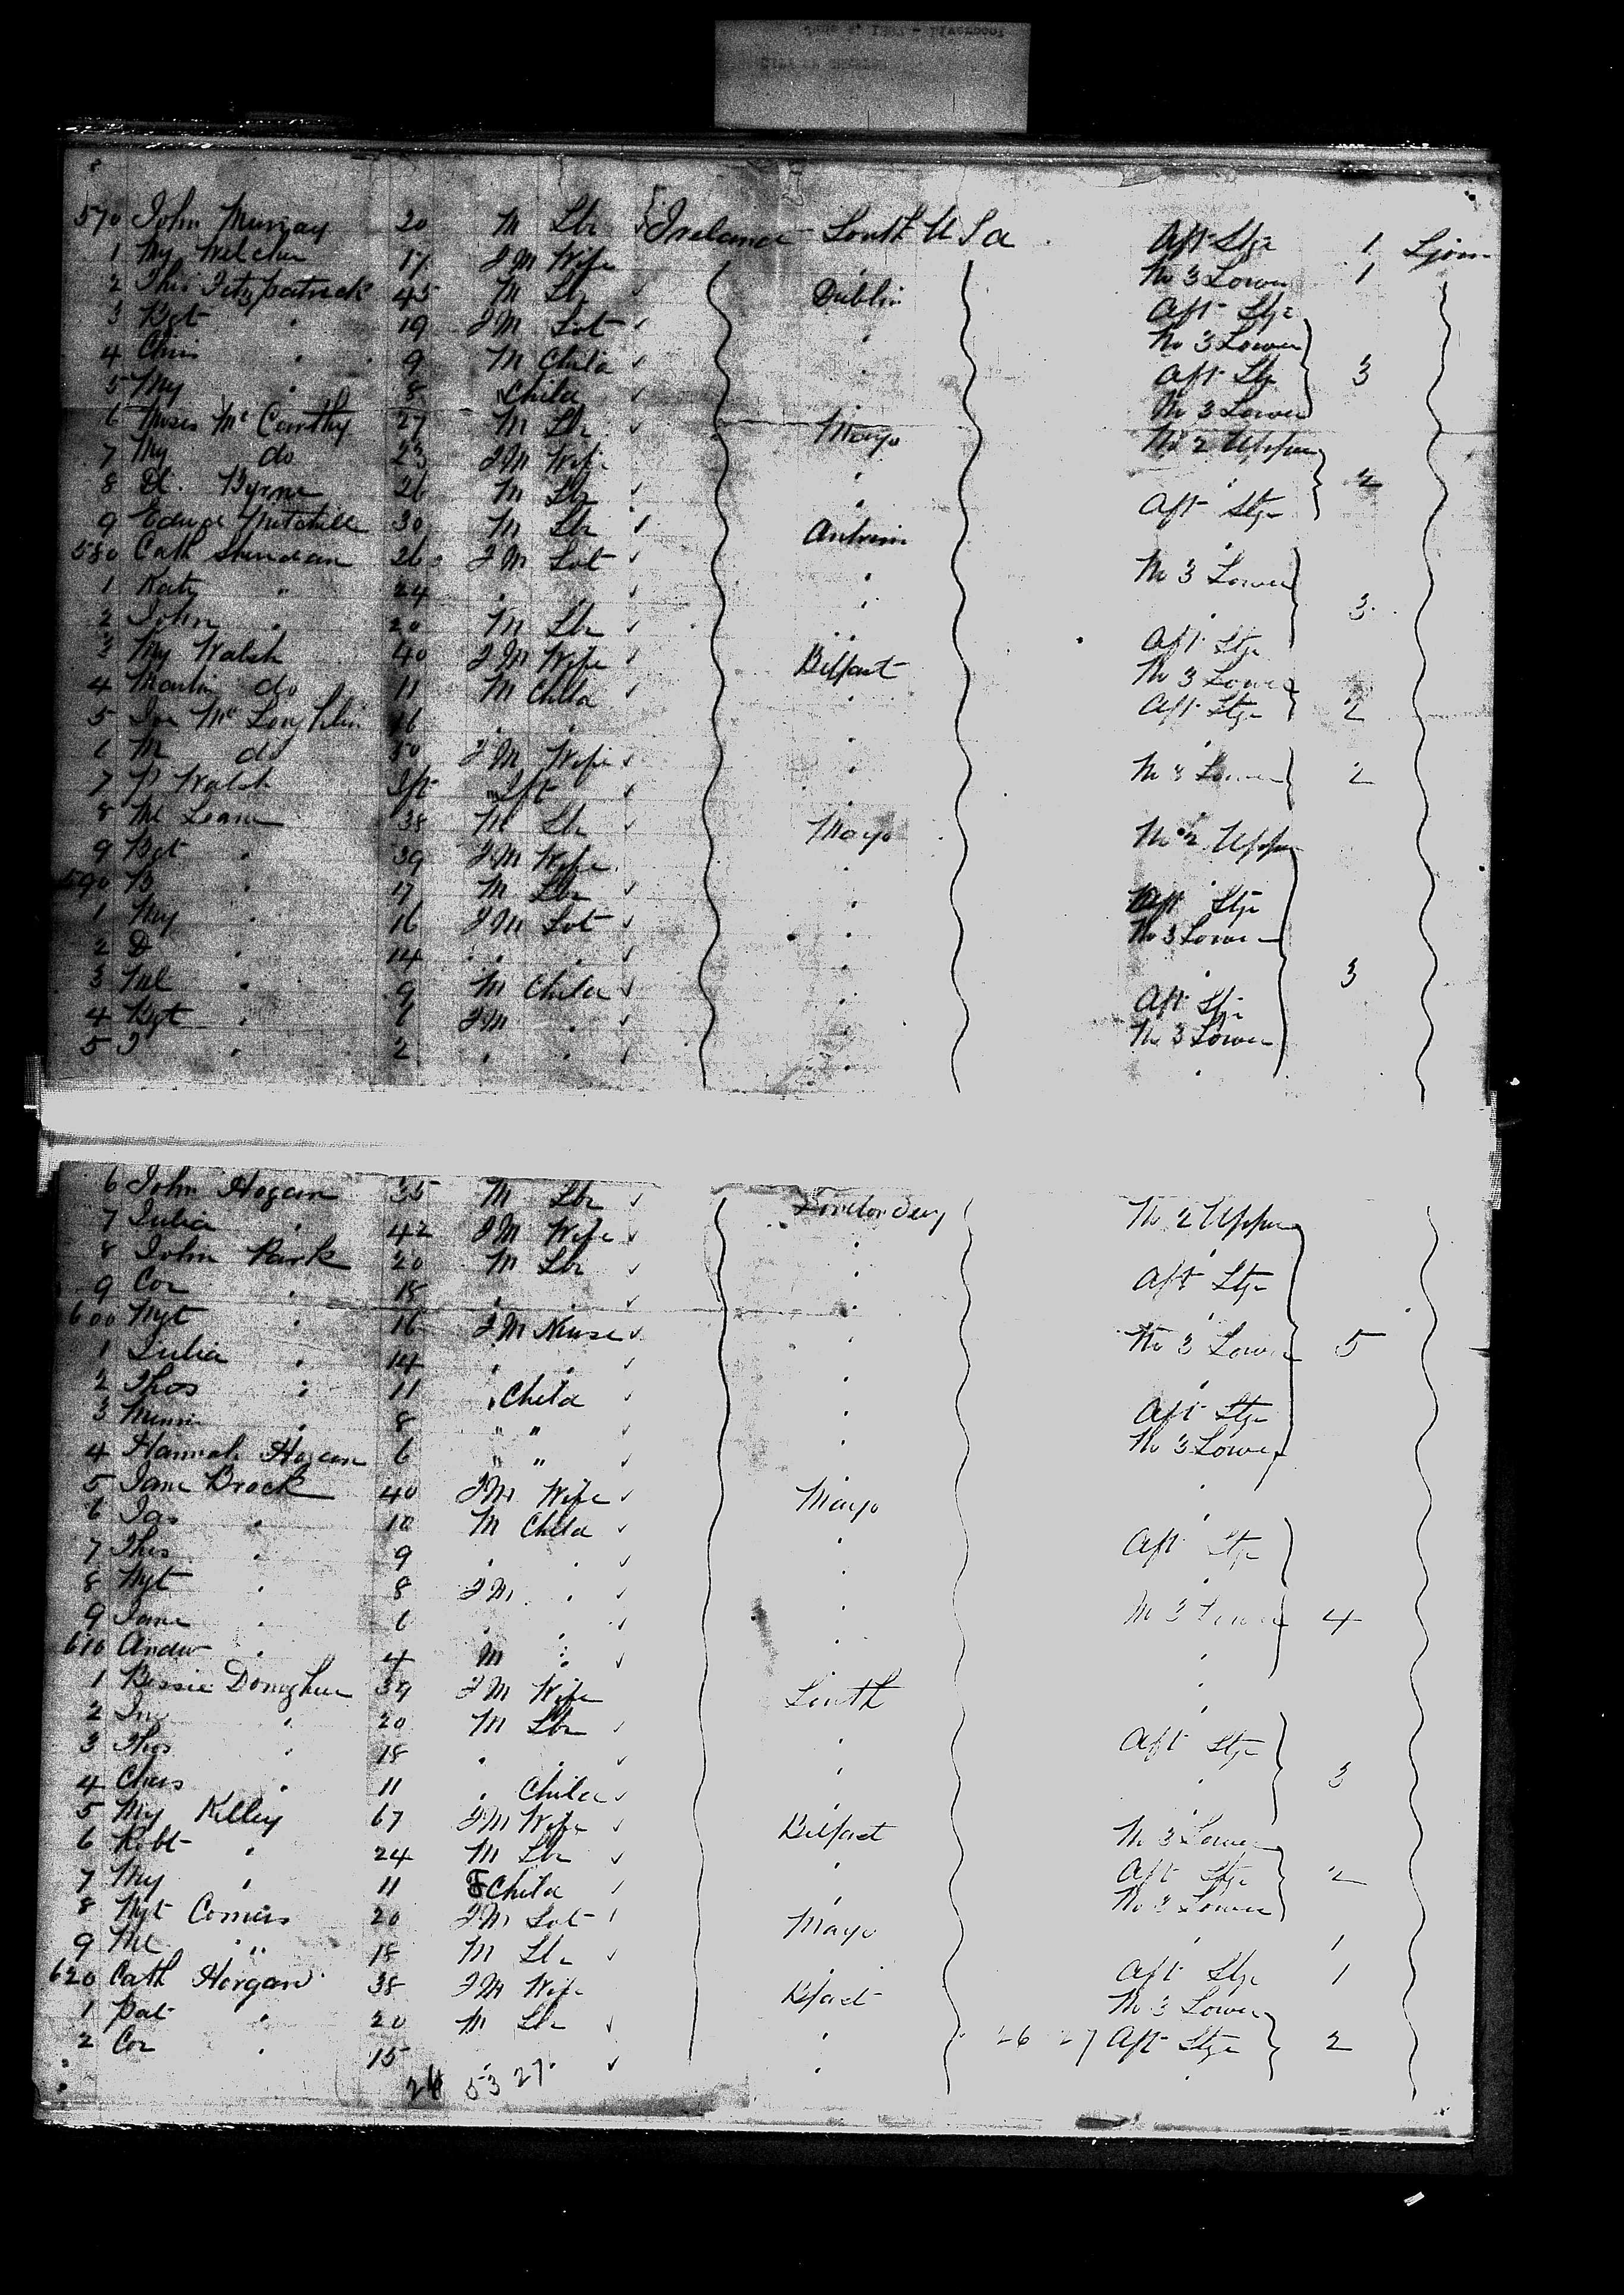 570 John Murray 20 M Lbr Ireland Louth U S a Aft Stge 1 Ljom
1 My Welche 17 F M Wife " No 3 Lower 1
2 Thos Fitzpatrick 45 M Lbr Dublin Aft Stge
3 Bgt " 19 F M Svt " No 3 Lower
4 Chris " 9 M Child " Aft Stge 3
5 My " 8 " Child " No 3 Lower
6 Moses Mc Carthy 27 M Lbr Mayo No 2 Upper
7 My do 23 F M Wife " " 2
8 D. Byrne 26 M Lbr " Aft Stge
9 Mitchell 30 M Lbr Antrim "
580 Cath Sheridan 26 F M Svt " No 3 Lower
1 Kate " 24 " " " " 3
2 John " 20 M Lbr " Aft Stge
3 My Walsh 40 F M Wife Belfast No 3 Lower
4 Martin do 11 M Child " Aft Stge 2
5 Mc Loughlin 16 " " " "
6 M do 30 F M Wife " No 3 Lower 2
7 P Walsh Ift " Ift "
8 Ml 38 M Lbr Mayo No 2 Upper
9 Bgt " 39 F M Wife " "
590 B " 17 M Lbr " Aft Stge
1 My " 16 F M Svt " No 3 Lower
2 D " 14 " " " "
3 Ml " 9 M Child " Aft Stge 3
4 Bgt " 6 F M " " No 3 Lower
5 J " 2 " " " "
6 John Hogan 35 M Lbr Londonderry No 2 Upper
7 Julia " 42 F M Wife " "
8 John Park 20 M Lbr " Aft Stge
9 Cor " 18 " " " "
600 Mgt " 16 F M Nurse " No 3 Lower 5
1 Julia " 14 " " " "
2 Thos " 11 " Child " Aft Stge
3 Minnie " 8 " " " No 3 Lower
4 Hannah Hogan 6 " " " "
5 Jane Brock 40 F M Wife Mayo "
6 Jas " 10 M Child " Aft Stge
7 Thos " 9 " " " "
8 Mgt " 8 F M " " No 3 Lower 4
9 Jane " 6 " " " "
610 Andw " 4 M " " "
1 Bessie Donoghue 39 F M Wife Louth "
2 Jno " 20 M Lbr " Aft Stge
3 Thos " 18 " " " "
4 Chas " 11 " Child " " 3
5 My Kelley 67 F M Wife Belfast No 3 Lower
6 Robt " 24 M Lbr " Aft Stge 2
7 My " 11 F Child " No 3 Lower
8 Mgt Comers 20 F M Svt Mayo " 1
9 Ml " 18 M Lbr " Aft Stge 1
620 Cath Horgan 38 F M Wife Bfast No 3 Lower
1 Pat " 20 M Lbr " 26 27 Aft Stge 2
2 Cor " 15 " " " "
26 53 27